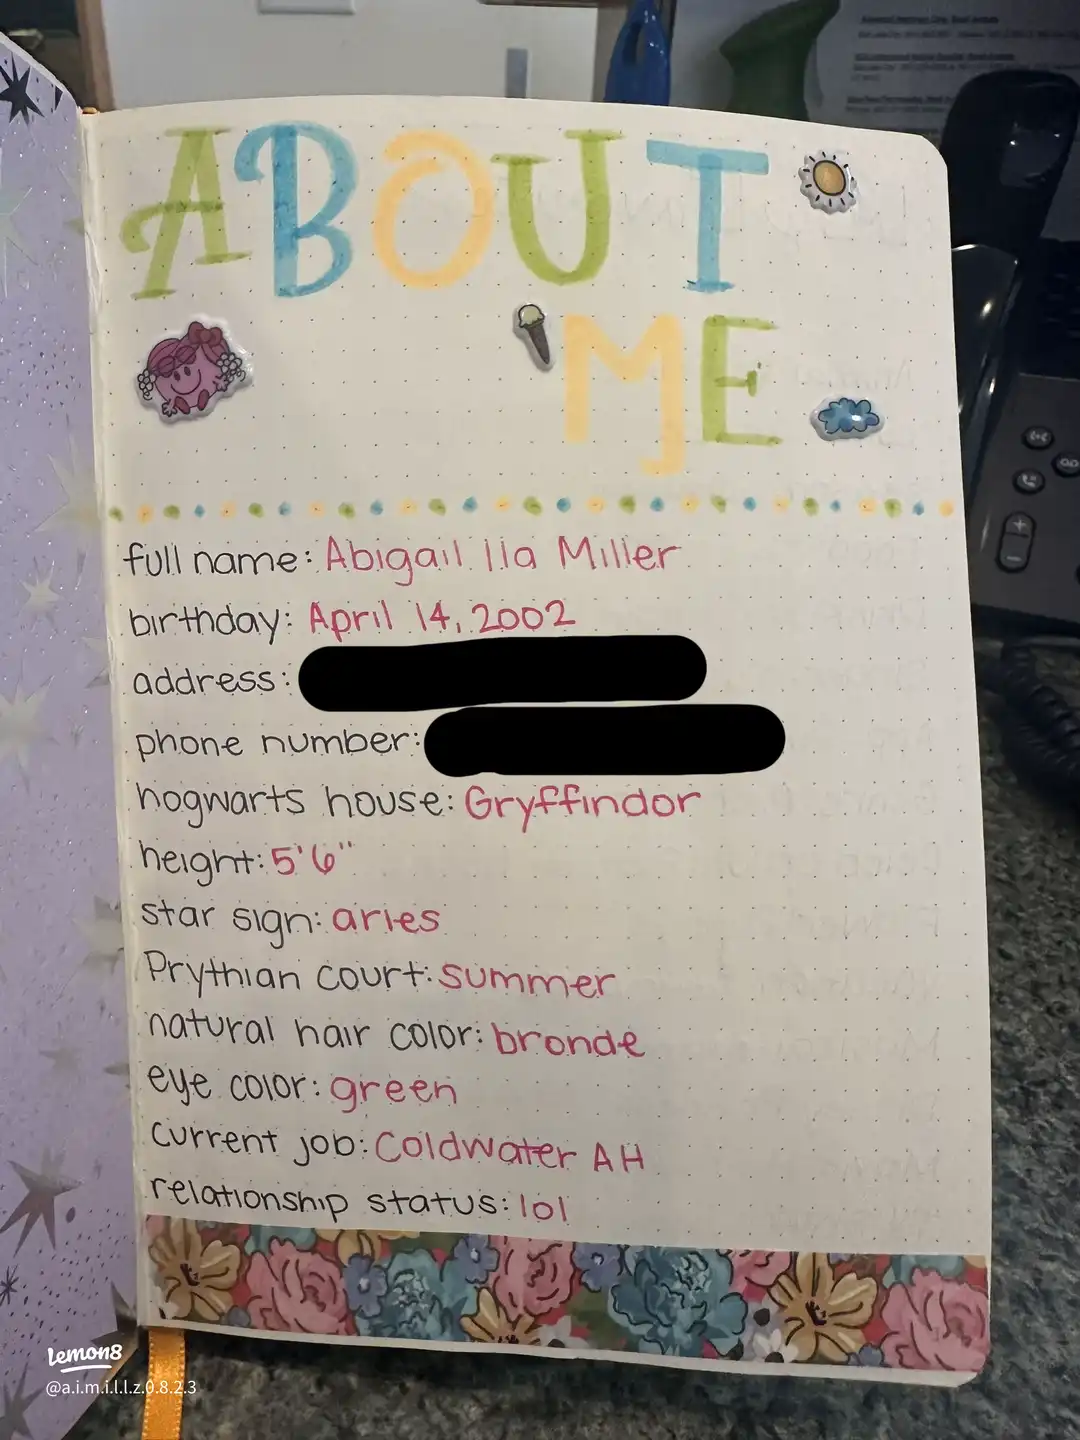 ABOUT
ME
full name: Abigail Ila Miller
birthday: April 14, 2002
address:
phone number:
hogwarts house: Gryffindor
height: 5'6"
star sign: aries
Prythian court: summer
natural hair color: bronde
eye color: green
current job: Coldwater AH
relationship status: lol
lemon8
@a.i.m.i.l.l.z.0.8.2.3